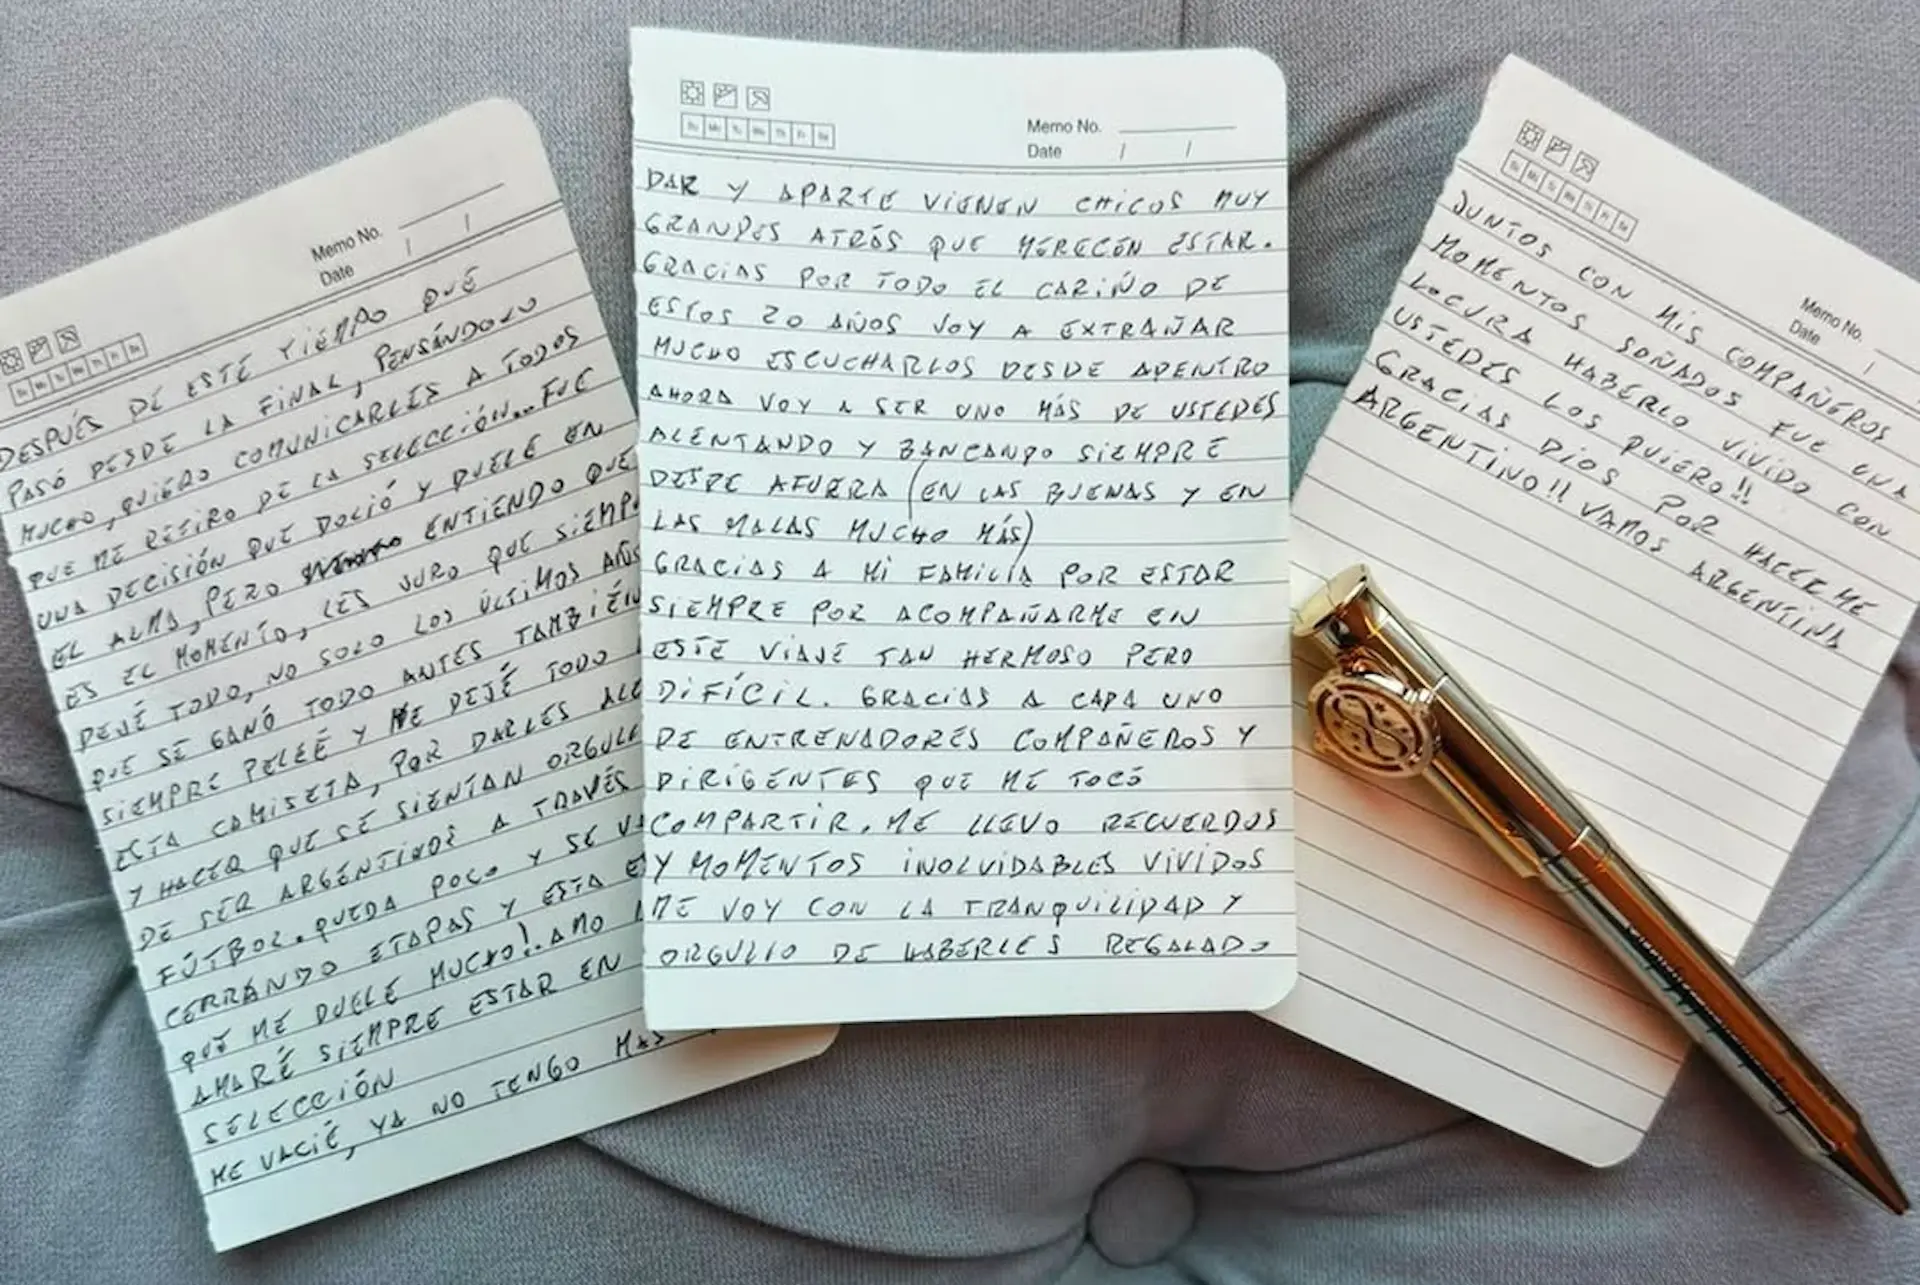 Memo No.
Date / /
DESPUÉS DE ESTE TIEMPO QUE
PASÓ DESDE LA FINAL, PENSÁNDOLO
MUCHO, QUIERO COMUNICARLES A TODOS
QUE ME RETIRO DE LA SELECCIÓN... FUE
UNA DECISIÓN QUE DOLIÓ Y DUELE EN
EL ALMA, PERO ENTIENDO QUE
ES EL MOMENTO, LES JURO QUE SIEMP
DEJÉ TODO, NO SOLO LOS ÚLTIMOS AÑOS
QUE SE GANÓ TODO ANTES TAMBIÉN
SIEMPRE PELEÉ Y ME DEJÉ TODO
ESTA CAMISETA, POR DARLES ALE
Y HACER QUE SE SIENTAN ORGULL
DE SER ARGENTINOS A TRAVÉS
FÚTBOL. QUEDA POCO Y SE VA
CERRANDO ETAPAS Y ESTA ES
QUE ME DUELE MUCHO!. AMO
AMARÉ SIEMPRE ESTAR EN
SELECCIÓN
ME VACIÉ, YA NO TENGO MAS
Su Mo Tu We Th Fr Sa
Memo No.
Date / /
DAR Y APARTE VIENEN CHICOS MUY
GRANDES ATRÁS QUE MERECEN ESTAR.
GRACIAS POR TODO EL CARIÑO DE
ESTOS 20 AÑOS VOY A EXTRAÑAR
MUCHO ESCUCHARLOS DESDE ADENTRO
AHORA VOY A SER UNO MÁS DE USTEDES
ALENTANDO Y BANCANDO SIEMPRE
DESDE AFUERA (EN LAS BUENAS Y EN
LAS MALAS MUCHO MÁS)
GRACIAS A MI FAMILIA POR ESTAR
SIEMPRE POR ACOMPAÑARME EN
ESTE VIAJE TAN HERMOSO PERO
DIFÍCIL. GRACIAS A CADA UNO
DE ENTRENADORES COMPAÑEROS Y
DIRIGENTES QUE ME TOCÓ
COMPARTIR. ME LLEVO RECUERDOS
Y MOMENTOS INOLVIDABLES VIVIDOS
ME VOY CON LA TRANQUILIDAD Y
ORGULLO DE HABERLES REGALADO
Memo No.
Date /
JUNTOS CON MIS COMPAÑEROS
MOMENTOS SOÑADOS FUE UNA
LOCURA HABERLO VIVIDO CON
USTEDES LOS QUIERO!!
GRACIAS DIOS POR HACERME
ARGENTINO!! VAMOS ARGENTINA